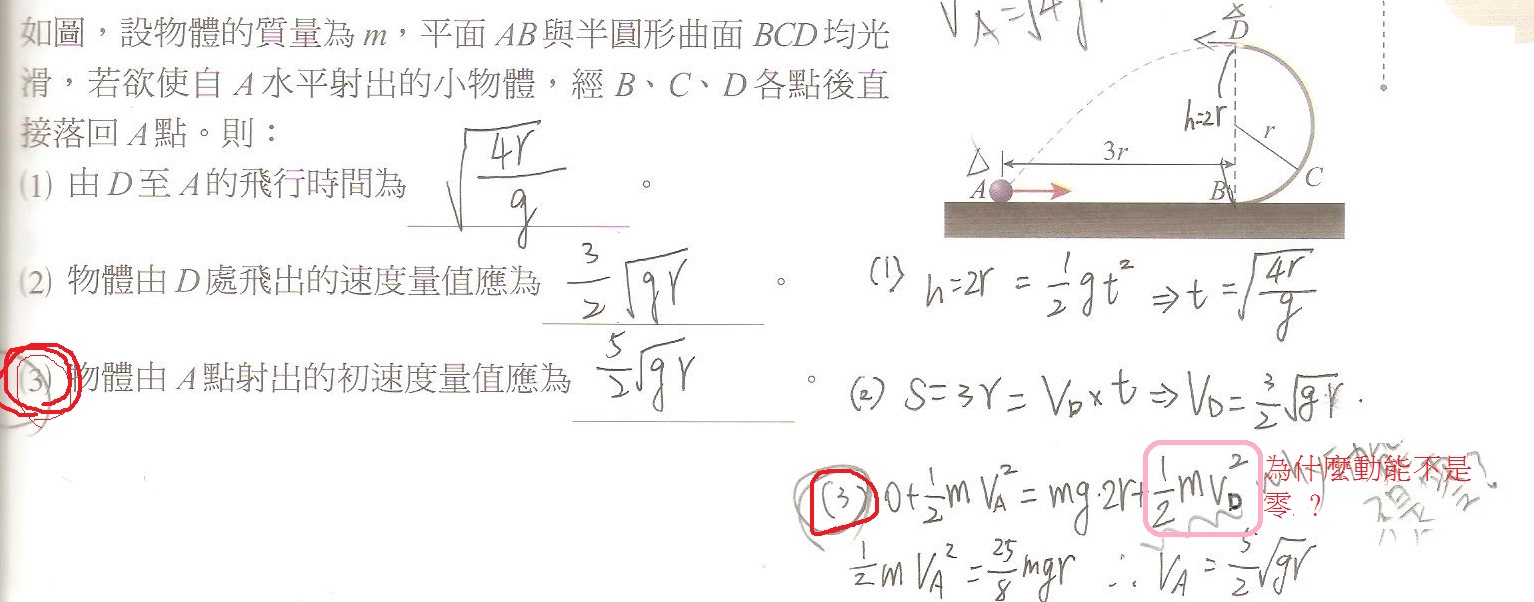 如圖，設物體的質量為 m，平面 AB 與半圓形曲面 BCD 均光
滑，若欲使自 A 水平射出的小物體，經 B、C、D 各點後直
接落回 A 點。則：
(1) 由 D 至 A 的飛行時間為 √(4r/g) 。
(2) 物體由 D 處飛出的速度量值應為 3/2 √gr 。
(3) 物體由 A 點射出的初速度量值應為 5/2 √gr 。
D
h=2r
r
3r
A
B
C
(1) h=2r = 1/2 gt² ⇒ t = √(4r/g)
(2) S=3r = V_D × t ⇒ V_D = 3/2 √gr.
(3) 0+1/2 m V_A² = mg·2r+1/2 m V_D²
為什麼動能不是
零？
1/2 m V_A² = 25/8 mgr ∴ V_A = 5/2 √gr